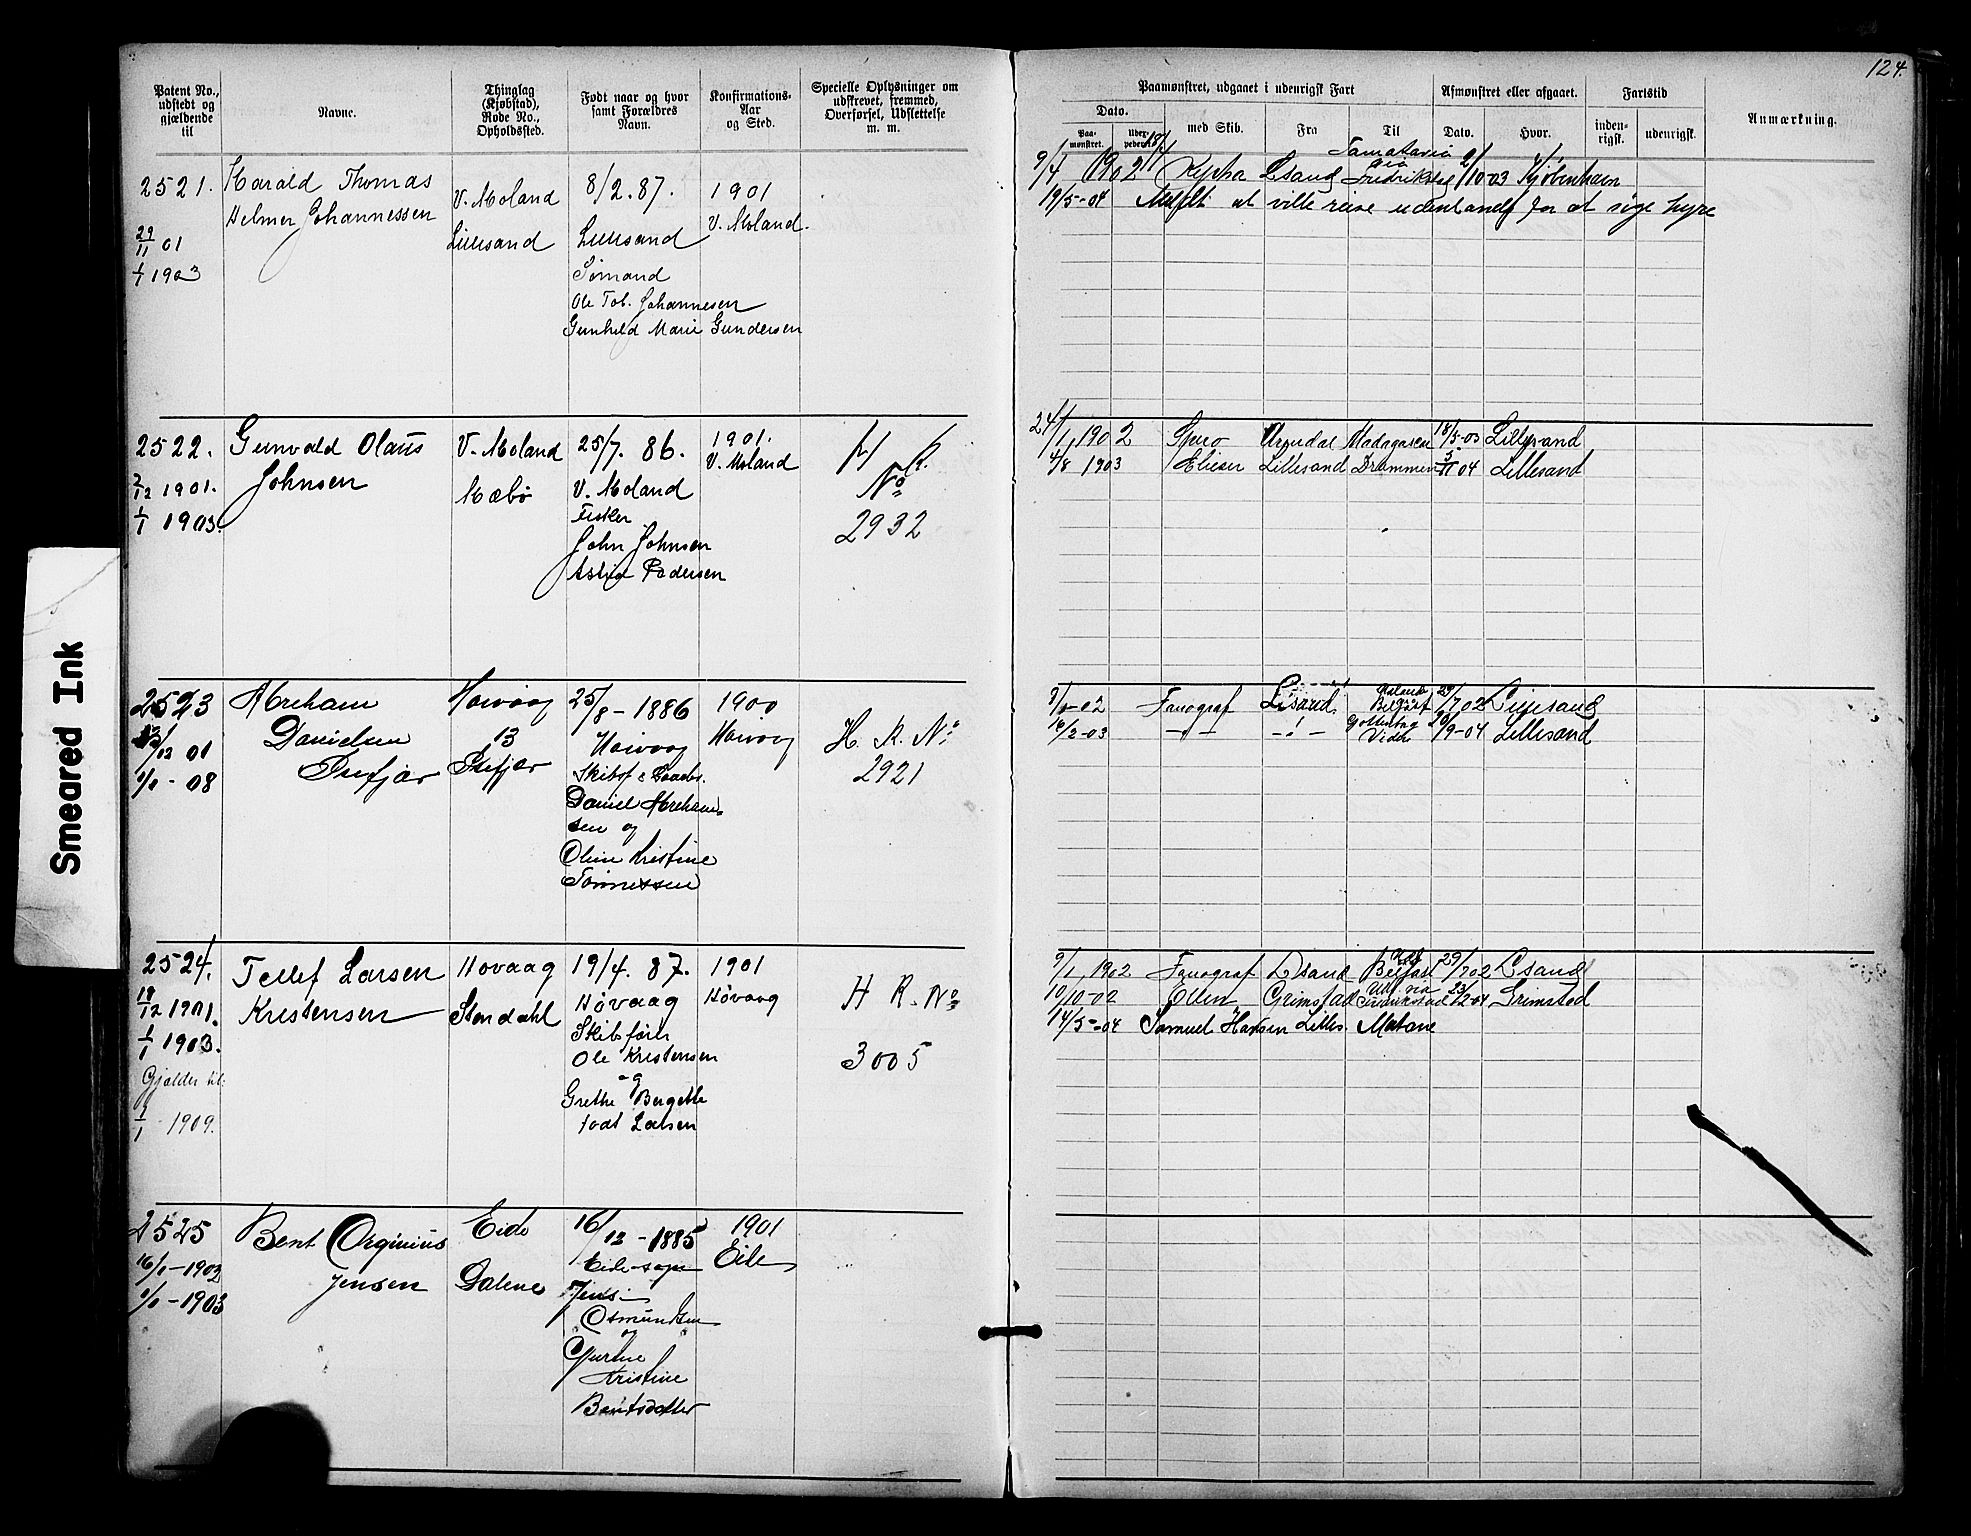 124.
Patent No., udstedt og gjældende til
Navne.
Thinglag (Kjøbstad), Rode No., Opholdssted.
Født naar og hvor samt Forældres Navn.
Konfirmations-Aar og Sted.
Specielle Oplysninger om udskrevet, fremmed, Overførsel, Udslettelse m. m.
Paamønstret, udgaaet i udenrigsk Fart
Afmønstret eller afgaaet.
Fartstid
Anmærkning.
Dato.
Paamønstret.
med Skib.
Fra
Til
Dato.
Hvor.
indenrigsk.
udenrigsk.
2521.
29/11 01
1/1 1903
Harald Thomas
Helmer Johannessen
V. Moland
Lillesand
8/2. 87.
Lillesand
Sømand
Ole Tob. Johannesen
Gunhild Marie Gundersen
1901
V. Moland.
9/4 1902
Lsand
Fredrikstad
2/10-03 Kjøbenhavn
19/5-04 at ville reise udenlands for at søge hyre
2522.
2/12 1901.
1/1 1903.
Gunvald Olaus
Johnsen
V. Moland
Mæbø
25/7. 86.
V. Moland
Fisker
John Johnsen
Pedersen
1901.
V. Moland
No
2932
24/1 1902
Arendal
18/5-03 Lillesand
4/8 1903 Elieser Lillesand Drammen 5/11 04 Lillesand
2523
13/12 01
1/1 - 08
Abreham
Danielsen
Høivaag
13
25/8 - 1886
Høivaag
Daniel Abreham-
sen og
Oline Kristine
Tønnessen
1900
Høivaag
H. R. No
2921
Fanograf
Belfast
29/7 02
16/2-03
/9-04 Lillesand
2524.
19/12 1901.
1/1 1903.
Gjælder til
1/1 1909.
Tellef Larsen
Kristensen
Høvaag
Stendahl
19/4. 87.
Høvaag
Skibsfører
Ole Kristensen
og
Grethe Bergette
født Larsen
1901
Høvaag
H R. No
3005
9/1 1902 Fanograf Lsand Belfast 29/7 02 Lsand
10/10-02 Ellen Grimstad
23/2-04 Grimstad
14/5-04 Samuel Hansen Lilles. Matane
2525
16/1-1902
1/1-1903
Bent
Jensen
Eide
Dalene
16/12-1885
Eide sogn
Jens
Osmundsen
og
Kristine
Bentsdatter
1901
Eide
Smeared Ink